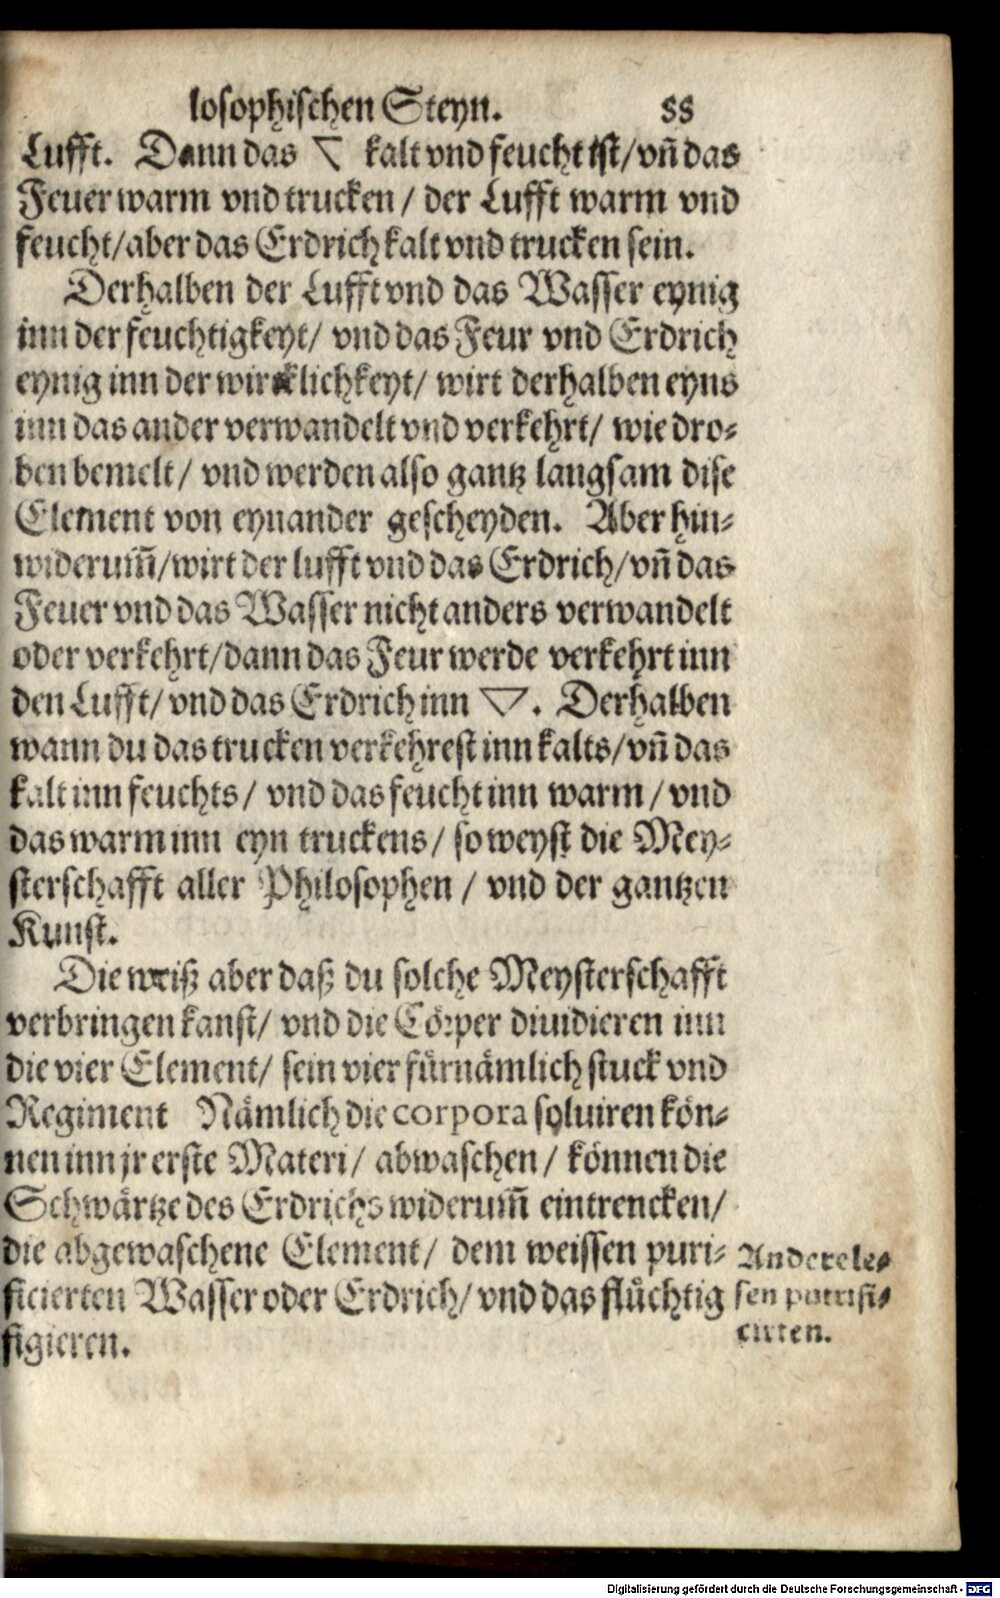 losophischen Steyn. 55
Lufft. Dann das ▽ kalt vnd feucht ist/ vñ das
Feuer warm vnd trucken / der Lufft warm vnd
feucht/ aber das Erdrich kalt vnd trucken sein.
Derhalben der Lufft vnd das Wasser eynig
inn der feuchtigkeyt/ vnd das Feur vnd Erdrich
eynig inn der wircklichkeyt/ wirt derhalben eyns
inn das ander verwandelt vnd verkehrt/ wie dro⸗
ben bemelt/ vnd werden also gantz langsam dise
Element von eynander gescheyden. Aber hin⸗
widerum̃/ wirt der lufft vnd das Erdrich/ vñ das
Feuer vnd das Wasser nicht anders verwandelt
oder verkehrt/ dann das Feur werde verkehrt inn
den Lufft/ vnd das Erdrich inn ▽. Derhalben
wann du das trucken verkehrest inn kalts/ vñ das
kalt inn feuchts/ vnd das feucht inn warm / vnd
das warm inn eyn truckens/ so weyst die Mey⸗
sterschafft aller Philosophen / vnd der gantzen
Kunst.
Die weiß aber daß du solche Meysterschafft
verbringen kanst/ vnd die Cörper diuidieren inn
die vier Element/ sein vier fürnämlich stuck vnd
Regiment Nämlich die corpora soluiren kön⸗
nen inn jr erste Materi/ abwaschen / können die
Schwärtze des Erdrichs widerum̃ eintrencken/
die abgewaschene Element/ dem weissen puri⸗
ficierten Wasser oder Erdrich/ vnd das flüchtig
figieren.
Andere le⸗
sen putrifi⸗
cirten.
Digitalisierung gefördert durch die Deutsche Forschungsgemeinschaft - DFG